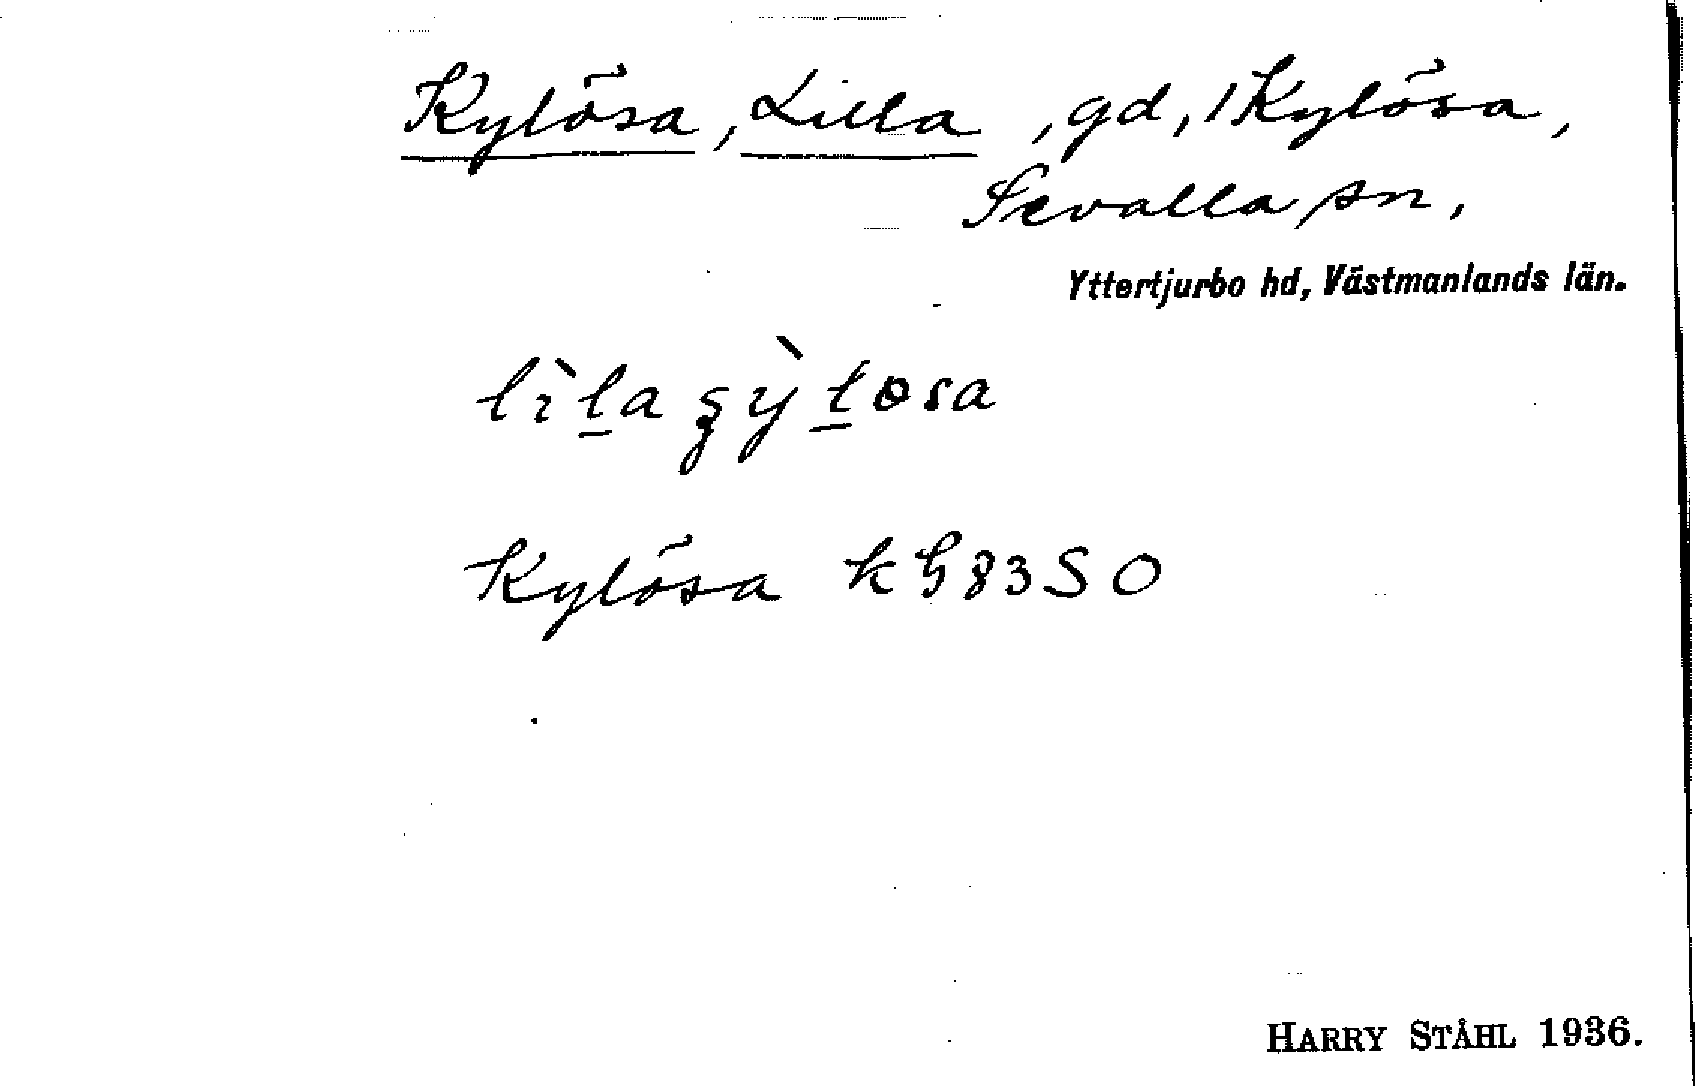 Kylösa, Lilla, gd, 1 Kylösa,
Sevalla sn,
Yttertjurbo hd, Västmanlands län.
Kylösa k h 83 S O
HARRY STÅHL 1936.